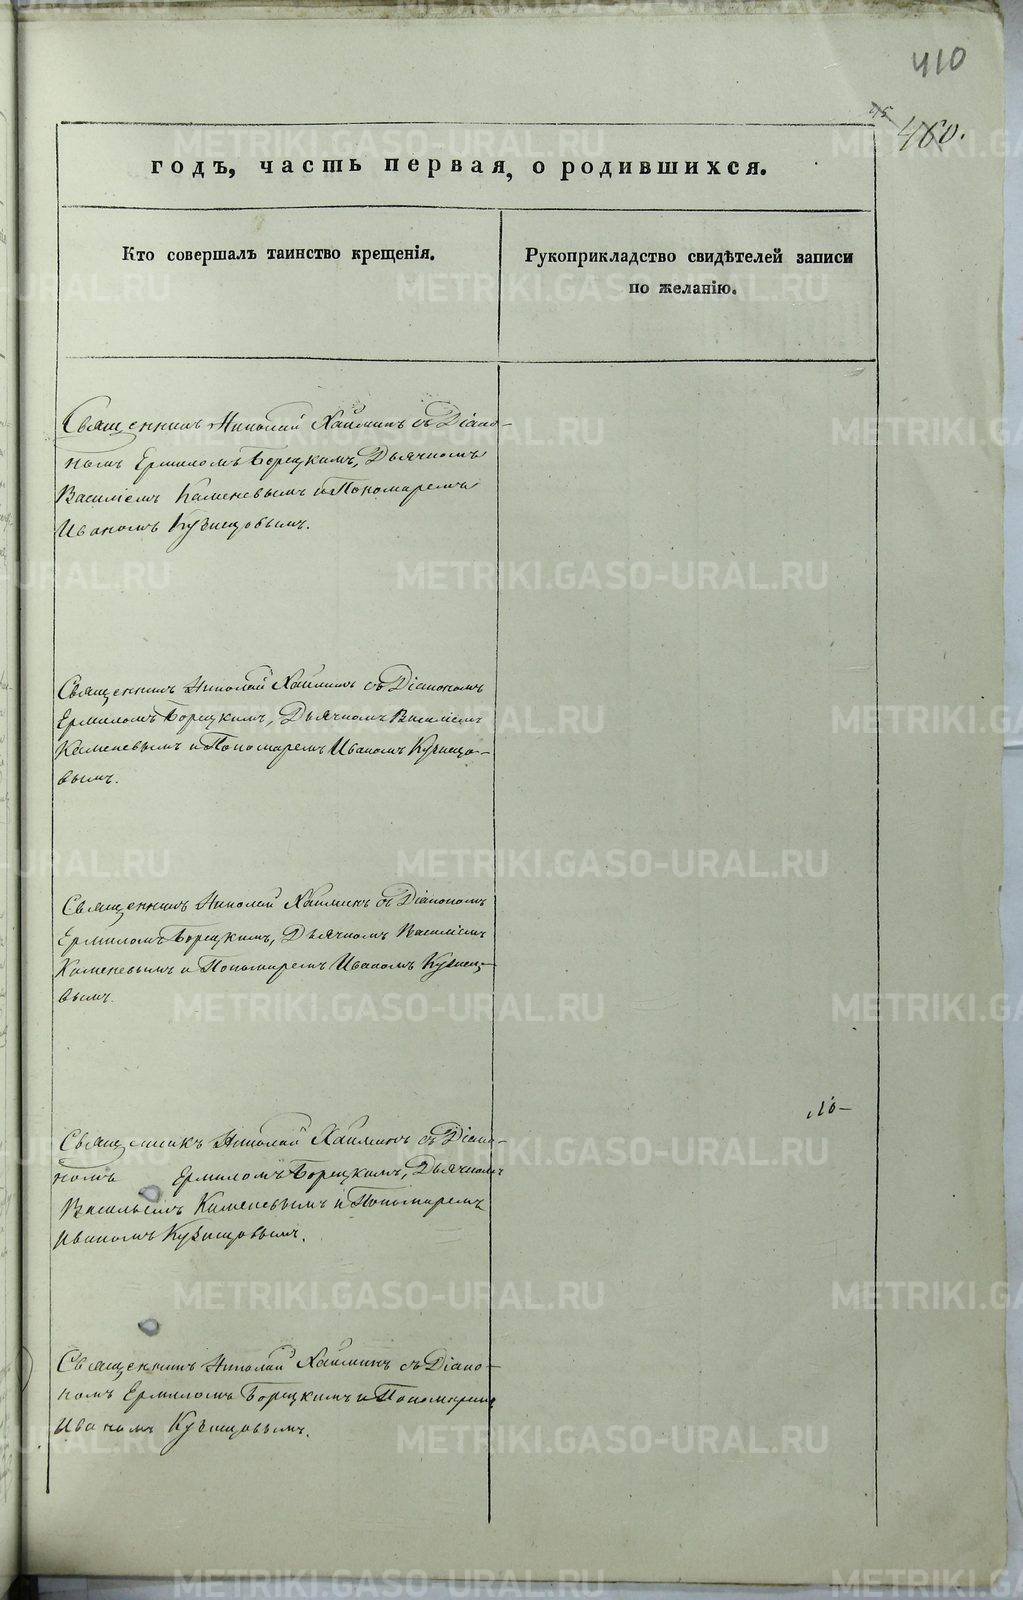 410
45
460.
годъ, часть первая, о родившихся.
Кто совершалъ таинство крещенія.
Рукоприкладство свидѣтелей записи
по желанію.
Священникъ Николай Хаймикъ съ Діако-
номъ Ермиломъ Борецкимъ, Дьячкомъ
Василіемъ Каменевымъ и Пономаремъ
Иваномъ Кузнецовымъ.
Священникъ Николай Хаймикъ съ Діакономъ
Ермиломъ Борецкимъ, Дьячкомъ Василіемъ
Каменевымъ и Пономаремъ Иваномъ Кузнецо-
вымъ.
Священникъ Николай Хаймикъ съ Діакономъ
Ермиломъ Борецкимъ, Дьячкомъ Василіемъ
Каменевымъ и Пономаремъ Иваномъ Кузнец-
вымъ.
Священникъ Николай Хаймикъ съ Діако-
номъ Ермиломъ Борецкимъ, Дьячкомъ
Васильемъ Каменевымъ и Пономаремъ
Иваномъ Кузнецовымъ.
Священникъ Николай Хаймикъ съ Діако-
номъ Ермиломъ Борецкимъ и Пономаремъ
Иваномъ Кузнецовымъ.
METRIKI.GASO-URAL.RU